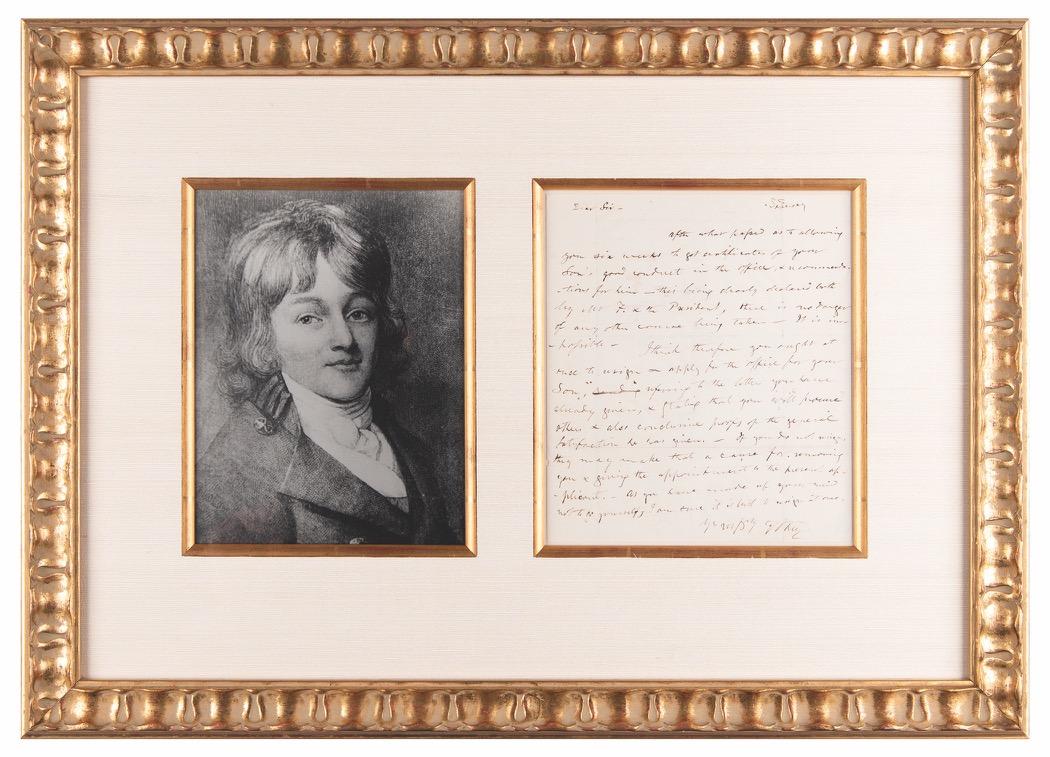 Dear Sir –
After what passed as to allowing
you six weeks to get certificates of your
Son's good conduct in the office, & recommenda-
-tions for him – this being clearly declared both
by Mr F. & the President, there is no danger
of any other course being taken – It is im-
-possible – I think therefore you ought at
once to resign – apply for the office for your
Son, referring to the letter you have
already given, & stating that you will procure
others & also conclusive proofs of the general
satisfaction he has given. – If you do not resign,
they may make that a cause for removing
you & giving the appointment to the present ap-
-plicant. – As you have made up your mind
not to go yourself, I am sure it is best to resign at once.